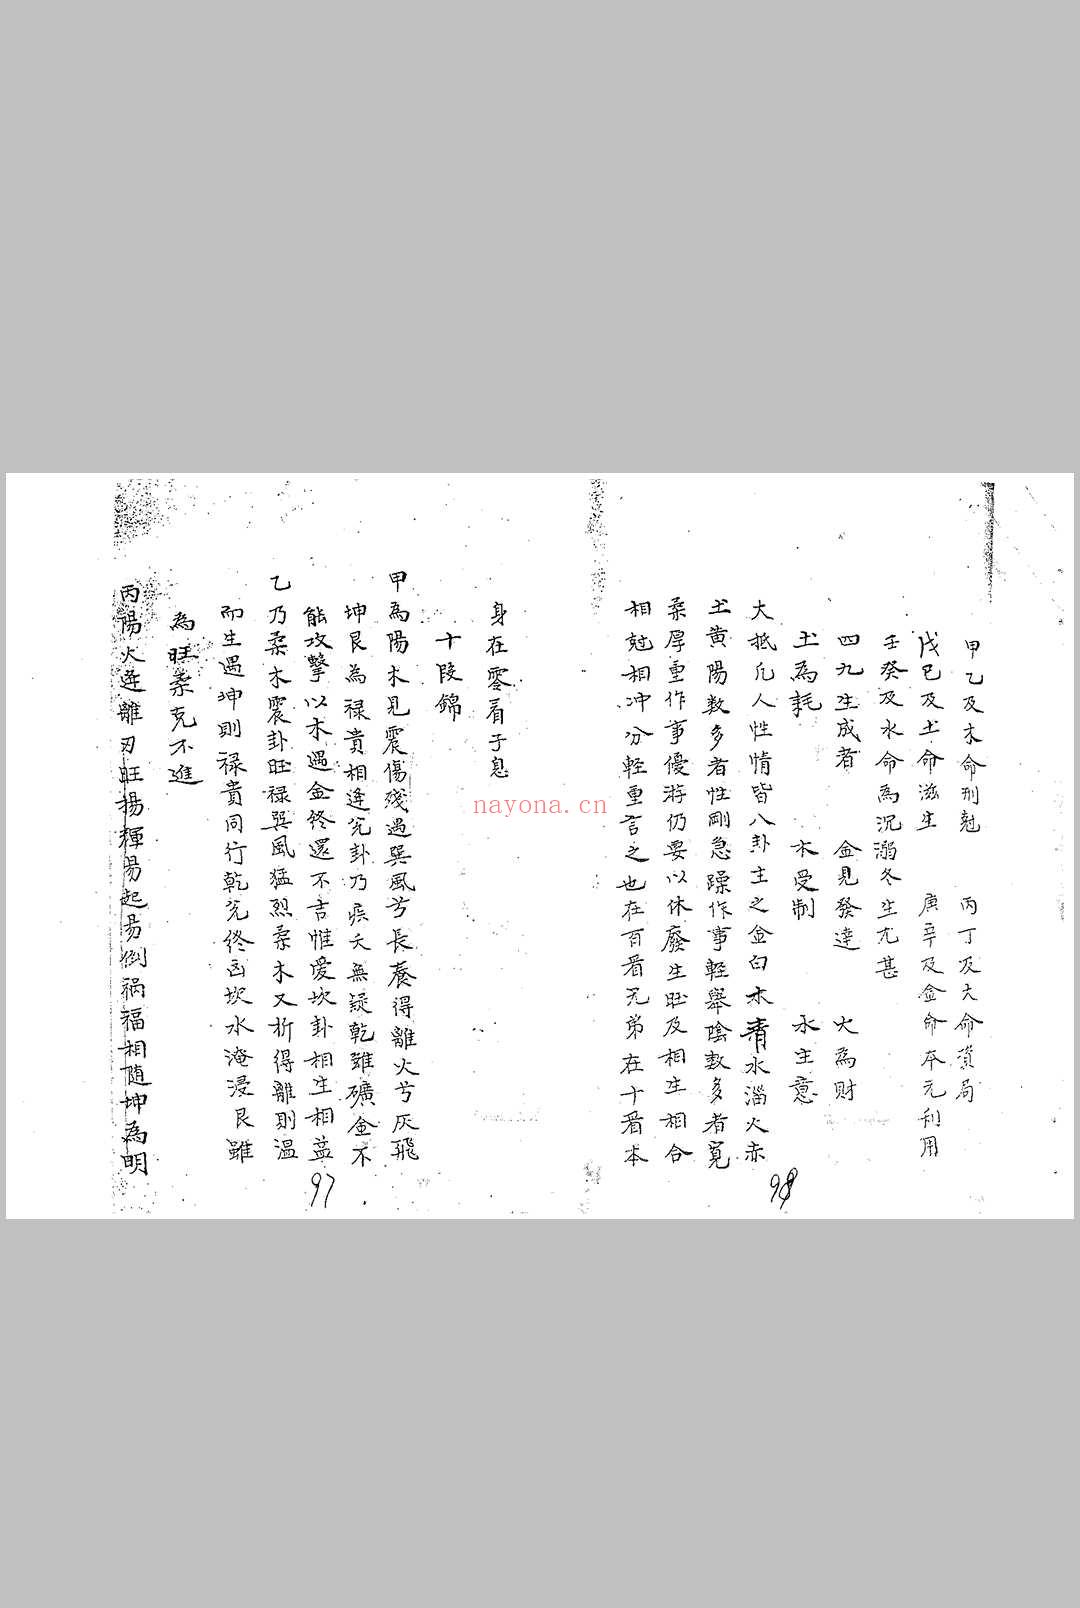 甲乙及木命刑尅 丙丁及火命資局
戊己及土命滋生 庚辛及金命本元利用
壬癸及水命為沉溺冬生尤甚
四九生成者 金見發達 火為財
土為耗 木受制 水主意
大抵凡人性情皆八卦主之金白木青水淄火赤
土黄陽数多者性剛急躁作事軽舉陰数多者寛
柔厚重作事優游仍要以休廢生旺及相生相合
相尅相冲分軽重言之也在百看兄弟在十看本
身在零看子息
十段錦
甲為陽木見震傷殘遇巽風兮長養得離火兮灰飛
坤艮為禄貴相逢兑卦乃疾夭無疑乾雖礦金不
能攻擊以木遇金终還不吉惟愛坎卦相生相益
乙乃柔木震卦旺禄巽風猛烈柔木又折得離則温
而生遇坤則禄貴同行乾兑终凶坎水淹浸艮雖
為旺柔克不進
丙陽火逢離刃旺揚輝易起易倒祸福相随坤為明
97
98
nayona.cn